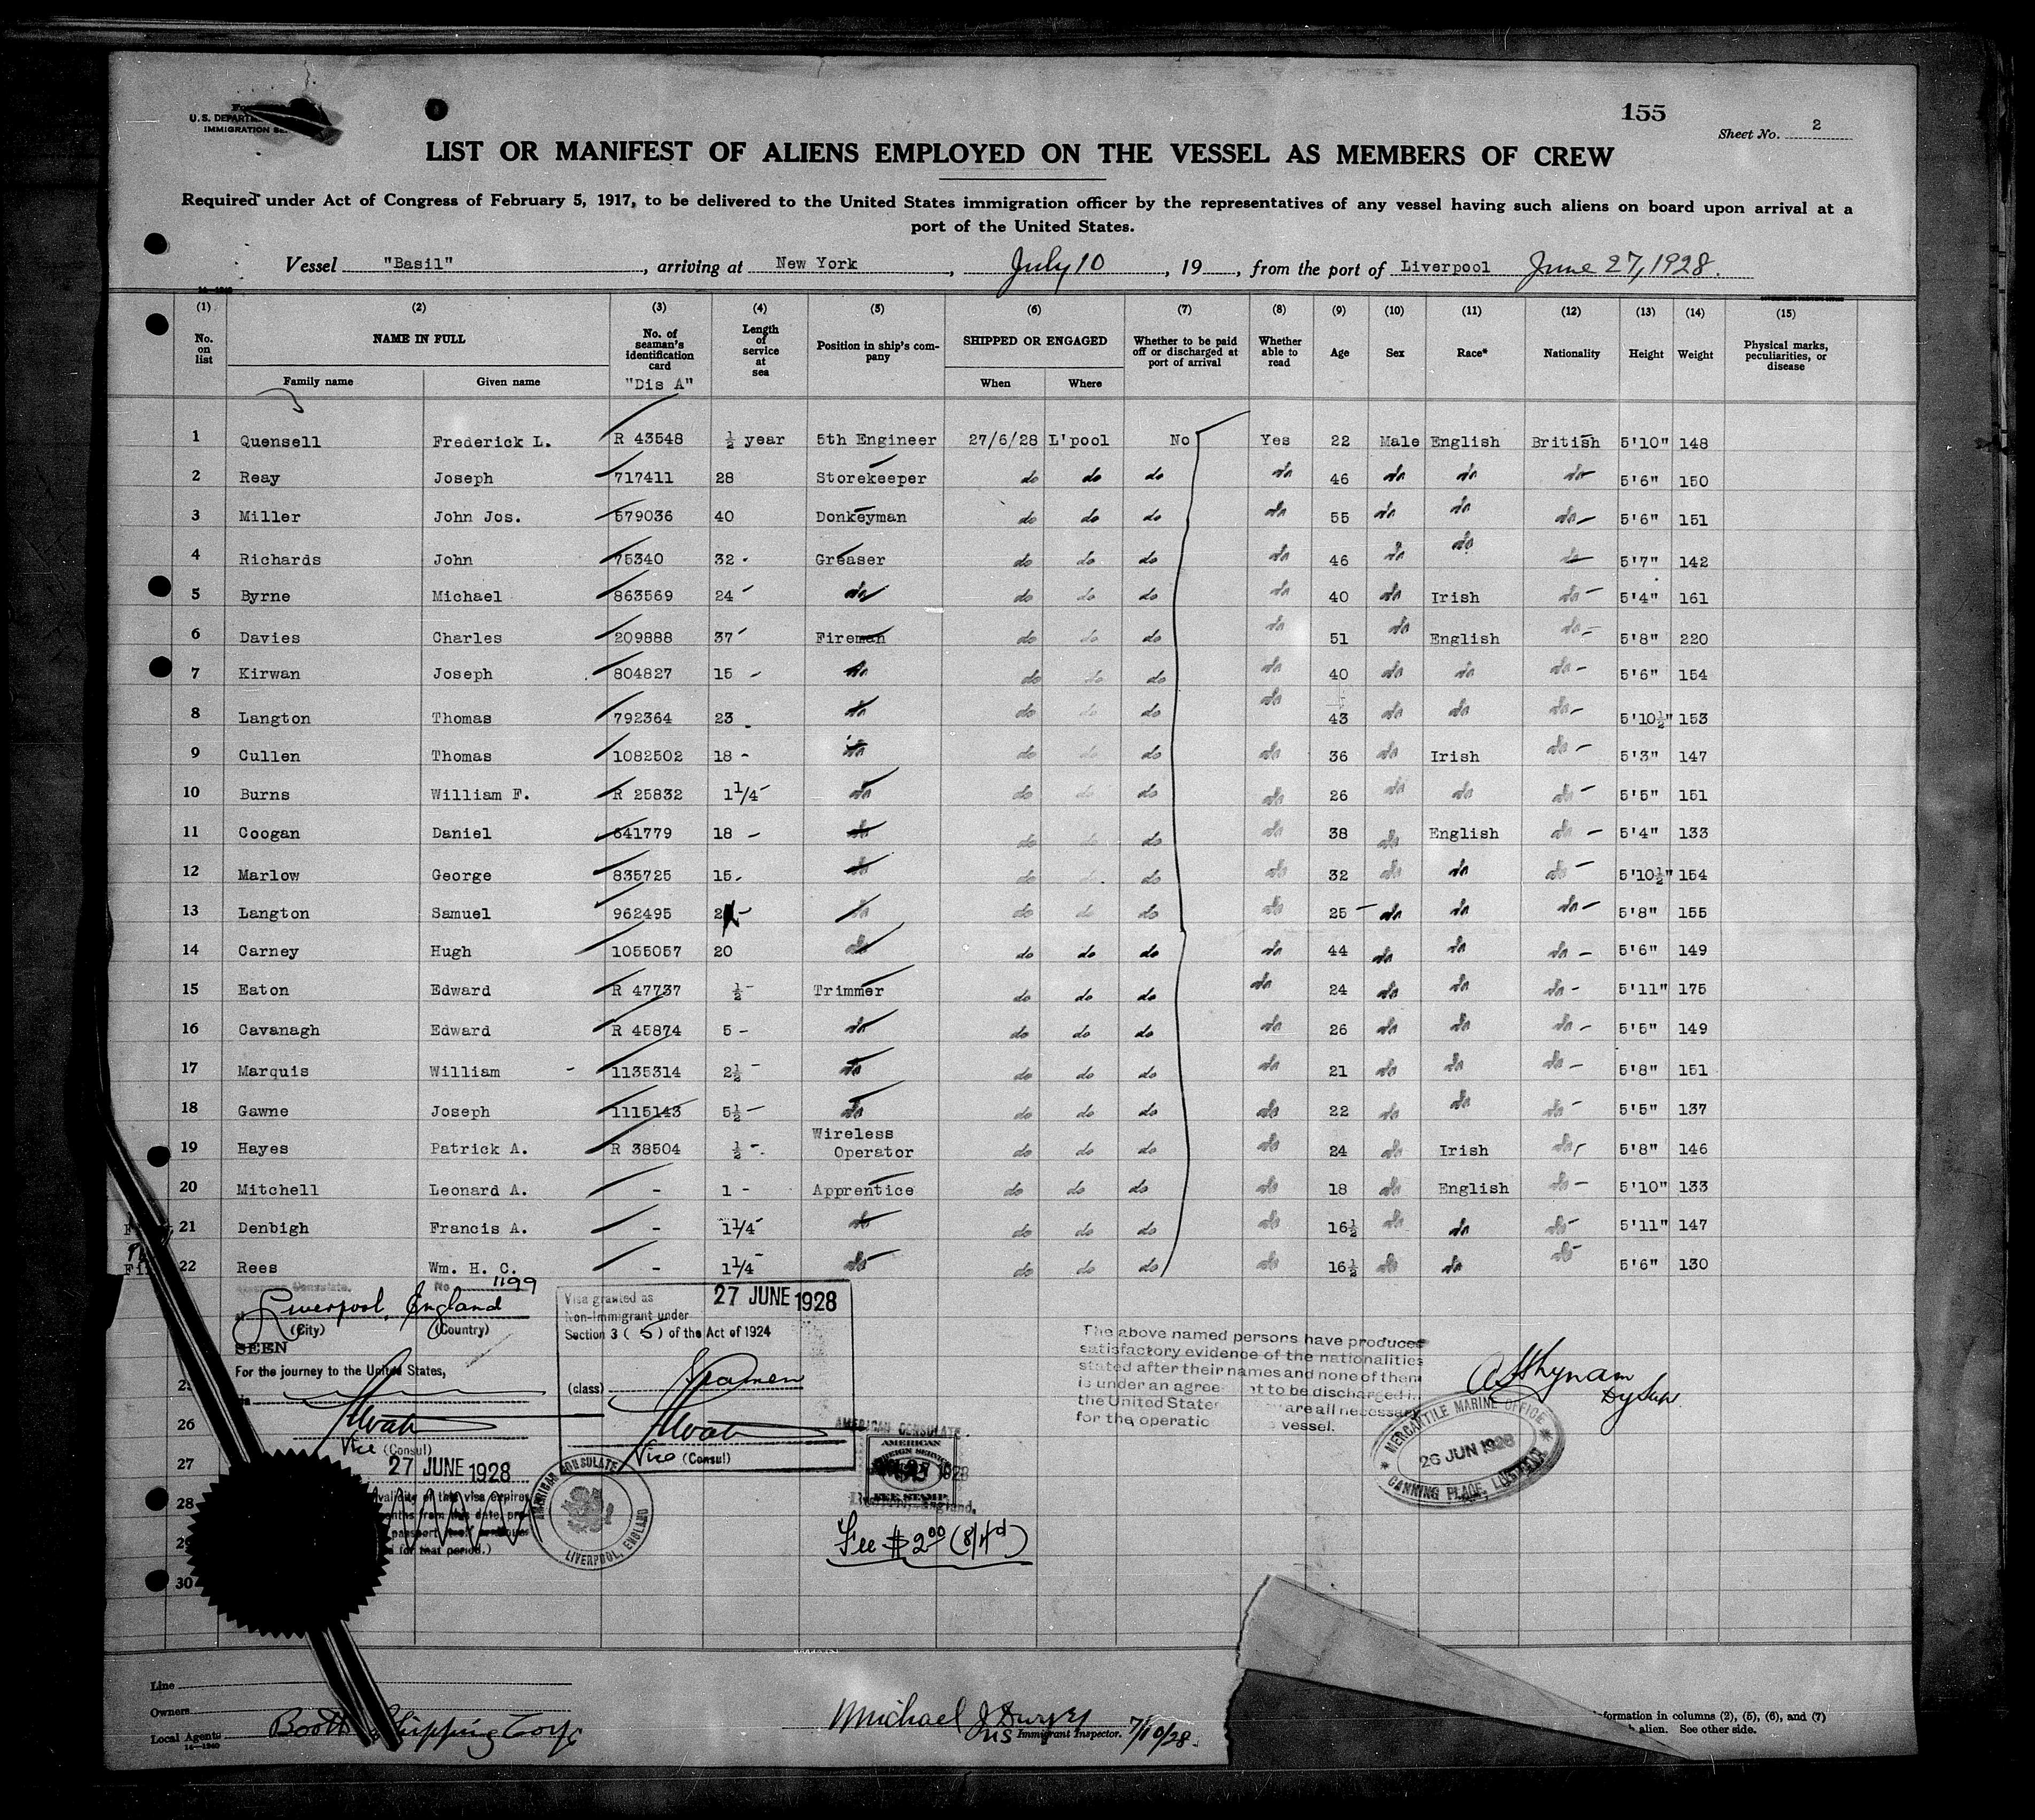 155
Sheet No. 2
U. S. DEPARTM
IMMIGRATION SE
LIST OR MANIFEST OF ALIENS EMPLOYED ON THE VESSEL AS MEMBERS OF CREW
Required under Act of Congress of February 5, 1917, to be delivered to the United States immigration officer by the representatives of any vessel having such aliens on board upon arrival at a
port of the United States.
Vessel "Basil", arriving at New York, July 10, 19, from the port of Liverpool June 27, 1928.
(1) (2) (3) (4) (5) (6) (7) (8) (9) (10) (11) (12) (13) (14) (15)
No. on list NAME IN FULL No. of seaman's identification card Length of service at sea Position in ship's company SHIPPED OR ENGAGED Whether to be paid off or discharged at port of arrival Whether able to read Age Sex Race* Nationality Height Weight Physical marks, peculiarities, or disease
Family name Given name "Dis A" When Where
1 Quensell Frederick L. R 43548 ½ year 5th Engineer 27/6/28 L'pool No Yes 22 Male English British 5'10" 148
2 Reay Joseph 717411 28 Storekeeper do do do do 46 do do do 5'6" 150
3 Miller John Jos. 579036 40 Donkeyman do do do do 55 do do do 5'6" 151
4 Richards John 75340 32 Greaser do do do do 46 do do do 5'7" 142
5 Byrne Michael 863569 24 do do do do do 40 do Irish do 5'4" 161
6 Davies Charles 209888 37 Fireman do do do do 51 do English do 5'8" 220
7 Kirwan Joseph 804827 15 do do do do do 40 do do do 5'6" 154
8 Langton Thomas 792364 23 do do do do do 43 do do do 5'10½" 153
9 Cullen Thomas 1082502 18 do do do do do 36 do Irish do 5'3" 147
10 Burns William F. R 25832 1¼ do do do do do 26 do do do 5'5" 151
11 Coogan Daniel 641779 18 do do do do do 38 do English do 5'4" 133
12 Marlow George 835725 15 do do do do do 32 do do do 5'10½" 154
13 Langton Samuel 962495 2 do do do do do 25 do do do 5'8" 155
14 Carney Hugh 1055057 20 do do do do do 44 do do do 5'6" 149
15 Eaton Edward R 47737 ½ Trimmer do do do do 24 do do do 5'11" 175
16 Cavanagh Edward R 45874 5 do do do do do 26 do do do 5'5" 149
17 Marquis William 1135314 2½ do do do do do 21 do do do 5'8" 151
18 Gawne Joseph 1115143 5½ do do do do do 22 do do do 5'5" 137
19 Hayes Patrick A. R 38504 ½ Wireless Operator do do do do 24 do Irish do 5'8" 146
20 Mitchell Leonard A. - 1 Apprentice do do do do 18 do English do 5'10" 133
21 Denbigh Francis A. - 1¼ do do do do do 16½ do do do 5'11" 147
22 Rees Wm. H. C. - 1¼ do do do do do 16½ do do do 5'6" 130
No 1199
at Liverpool, England
(City) (Country)
SEEN
For the journey to the United States,
Vice (Consul)
27 JUNE 1928
validity of this visa expires
from this date, pro
passport
for that period.)
Visa granted as 27 JUNE 1928
Non-Immigrant under
Section 3 (5) of the Act of 1924
(class) Seamen
Vice (Consul)
AMERICAN CONSULATE
LIVERPOOL, ENGLAND
AMERICAN CONSULATE
AMERICAN
FOREIGN SERVICE
FEE STAMP
Liverpool, England.
Fee $2.00 (8/4d)
The above named persons have produced
satisfactory evidence of the nationalities
stated after their names and none of them
is under an agree nt to be discharged in
the United State are all necessary
for the operatio vessel.
Dy Supt.
MERCANTILE MARINE OFFICE
26 JUN 1928
CANNING PLACE, LIVERPOOL
26
27
28
29
30
Line
Owners
Local Agents Booth Shipping Corp
Michael J Dwyer
US Immigrant Inspector. 7/10/28.
formation in columns (2), (5), (6), and (7)
alien. See other side.